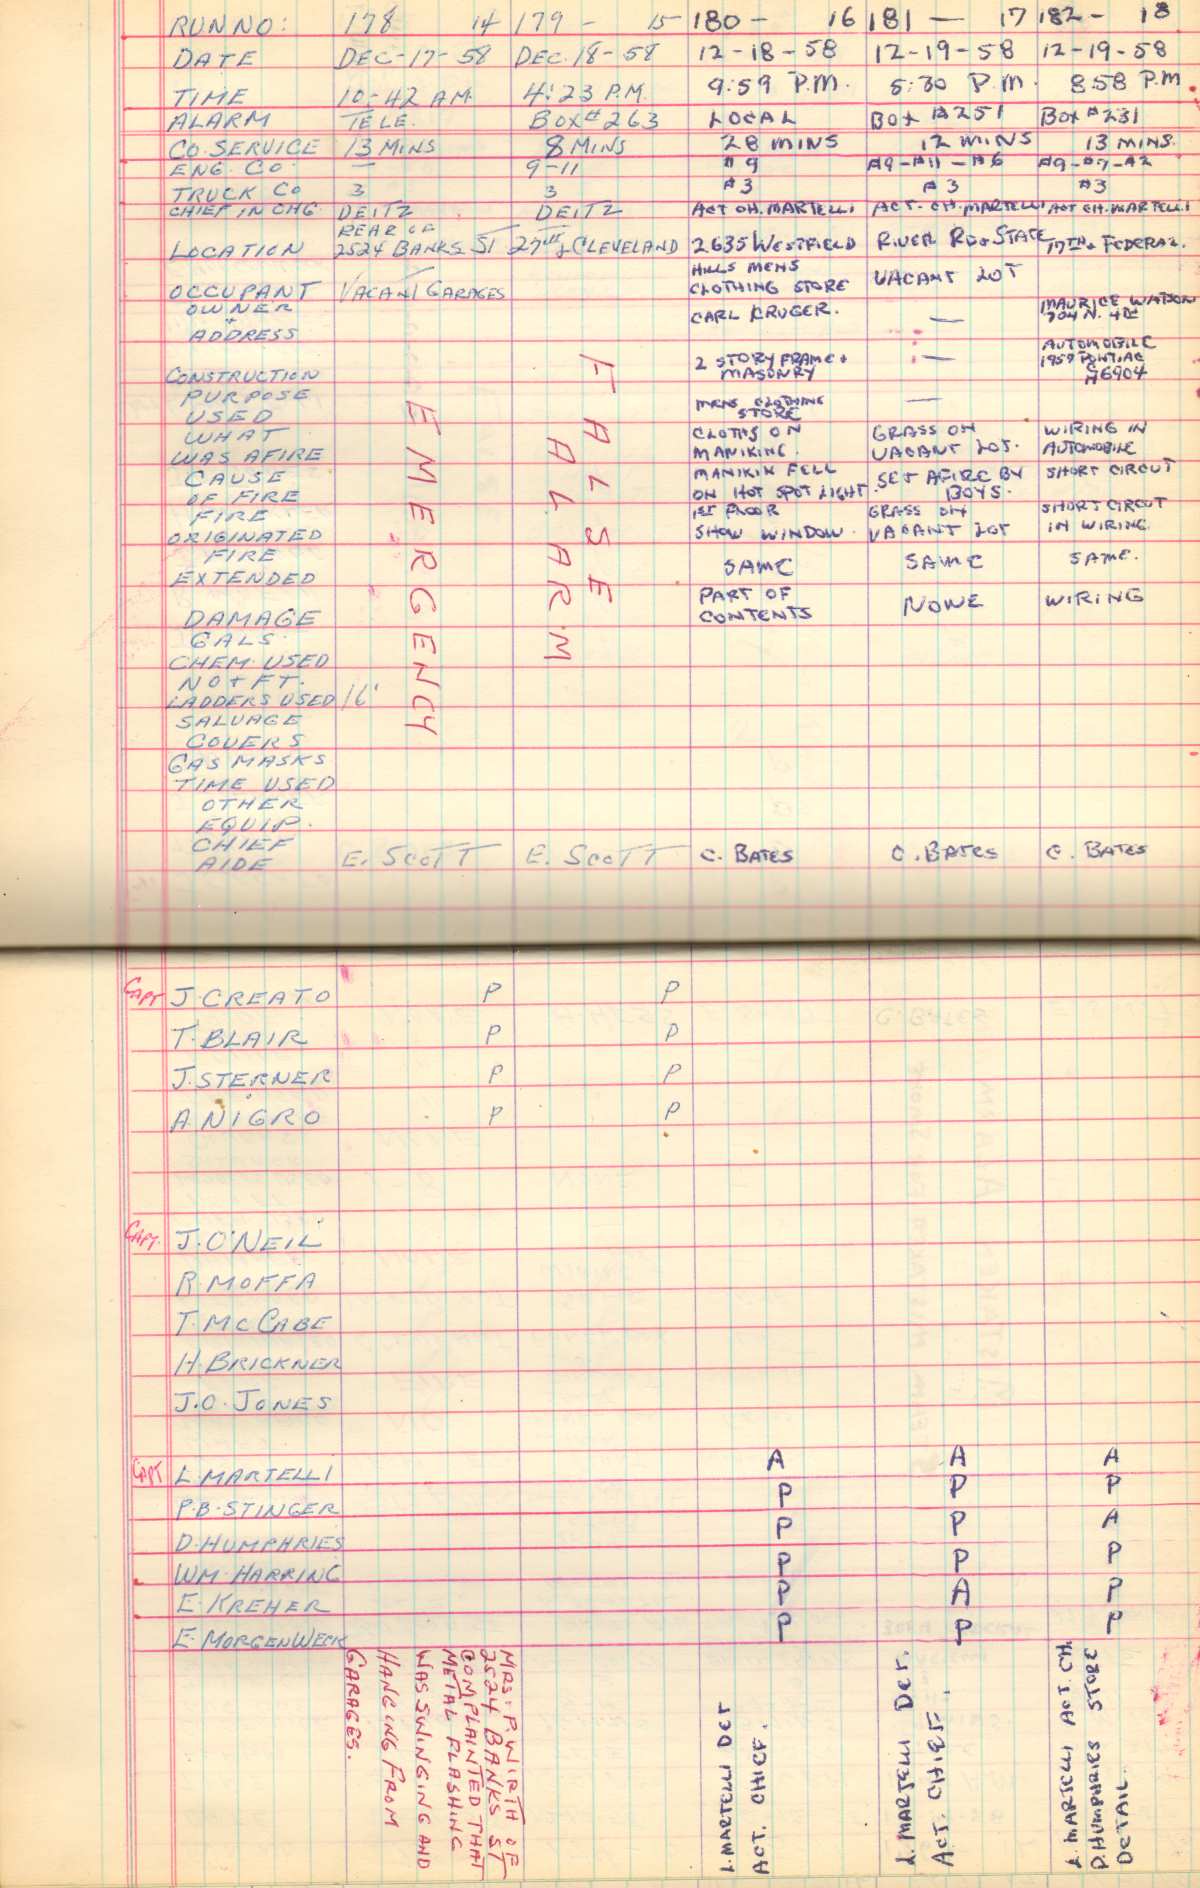 RUN NO: 178 14 179 - 15 180 - 16 181 — 17 182 - 18
DATE DEC-17-58 DEC.18-58 12-18-58 12-19-58 12-19-58
TIME 10-42 AM. 4:23 P.M. 9:59 P.M. 5:30 P.M. 8:58 P.M
ALARM TELE. BOX #263 LOCAL BOX #251 BOX #231
CO. SERVICE 13 MINS 8 MINS 28 MINS 12 MINS 13 MINS.
ENG. CO — 9-11 #9 #9-#11-#6 #9-#7-#2
TRUCK CO 3 3 #3 #3 #3
CHIEF IN CHG. DEITZ DEITZ ACT CH. MARTELLI ACT. CH. MARTELLI ACT CH. MARTELLI
REAR OF
LOCATION 2524 BANKS ST 27TH & CLEVELAND 2635 WESTFIELD RIVER RD & STATE 17TH & FEDERAL.
HILLS MENS
OCCUPANT VACANT GARAGES CLOTHING STORE VACANT LOT
OWNER MAURICE WATSON
+ CARL KRUGER. — 704 N. 4TH
ADDRESS
AUTOMOBILE
2 STORY FRAME + — 1959 PONTIAC
CONSTRUCTION MASONRY
PURPOSE MENS CLOTHING —
USED STORE
WHAT CLOTHS ON GRASS ON WIRING IN
WAS AFIRE MANIKING. VACANT LOT. AUTOMOBILE
CAUSE MANIKIN FELL SET AFIRE BY SHORT CIRCUT
OF FIRE ON HOT SPOT LIGHT. BOYS.
FIRE 1ST FLOOR GRASS ON SHORT CIRCUT
ORIGINATED SHOW WINDOW. VACANT LOT IN WIRING
FIRE SAME SAME SAME.
EXTENDED
PART OF
DAMAGE CONTENTS NONE WIRING
GALS.
CHEM. USED
NO + FT.
LADDERS USED 16'
SALVAGE
COVERS
GAS MASKS
TIME USED
OTHER
EQUIP.
CHIEF
AIDE E. SCOTT E. SCOTT C. BATES C. BATES C. BATES
EMERGENCY
FALSE
ALARM
CAPT J. CREATO P P
T. BLAIR P P
J. STERNER P P
A. NIGRO P P
CAPT. J. O'NEIL
R. MOFFA
T. MCCABE
H. BRICKNER
J. O. JONES
CAPT L. MARTELLI A A A
P. B. STINGER P P P
D. HUMPHRIES P P A
WM. HARRING P P P
E. KREHER P A P
E. MORGENWECK P P P
MRS. P. WIRTH OF
2524 BANKS ST
COMPLAINTED THAT
METAL FLASHING
WAS SWINGING AND
HANGING FROM
GARAGES.
L. MARTELLI DET
ACT. CHIEF.
L. MARTELLI DET.
ACT. CHIEF.
L. MARTELLI ACT. CH.
D. HUMPHRIES STORE
DETAIL.